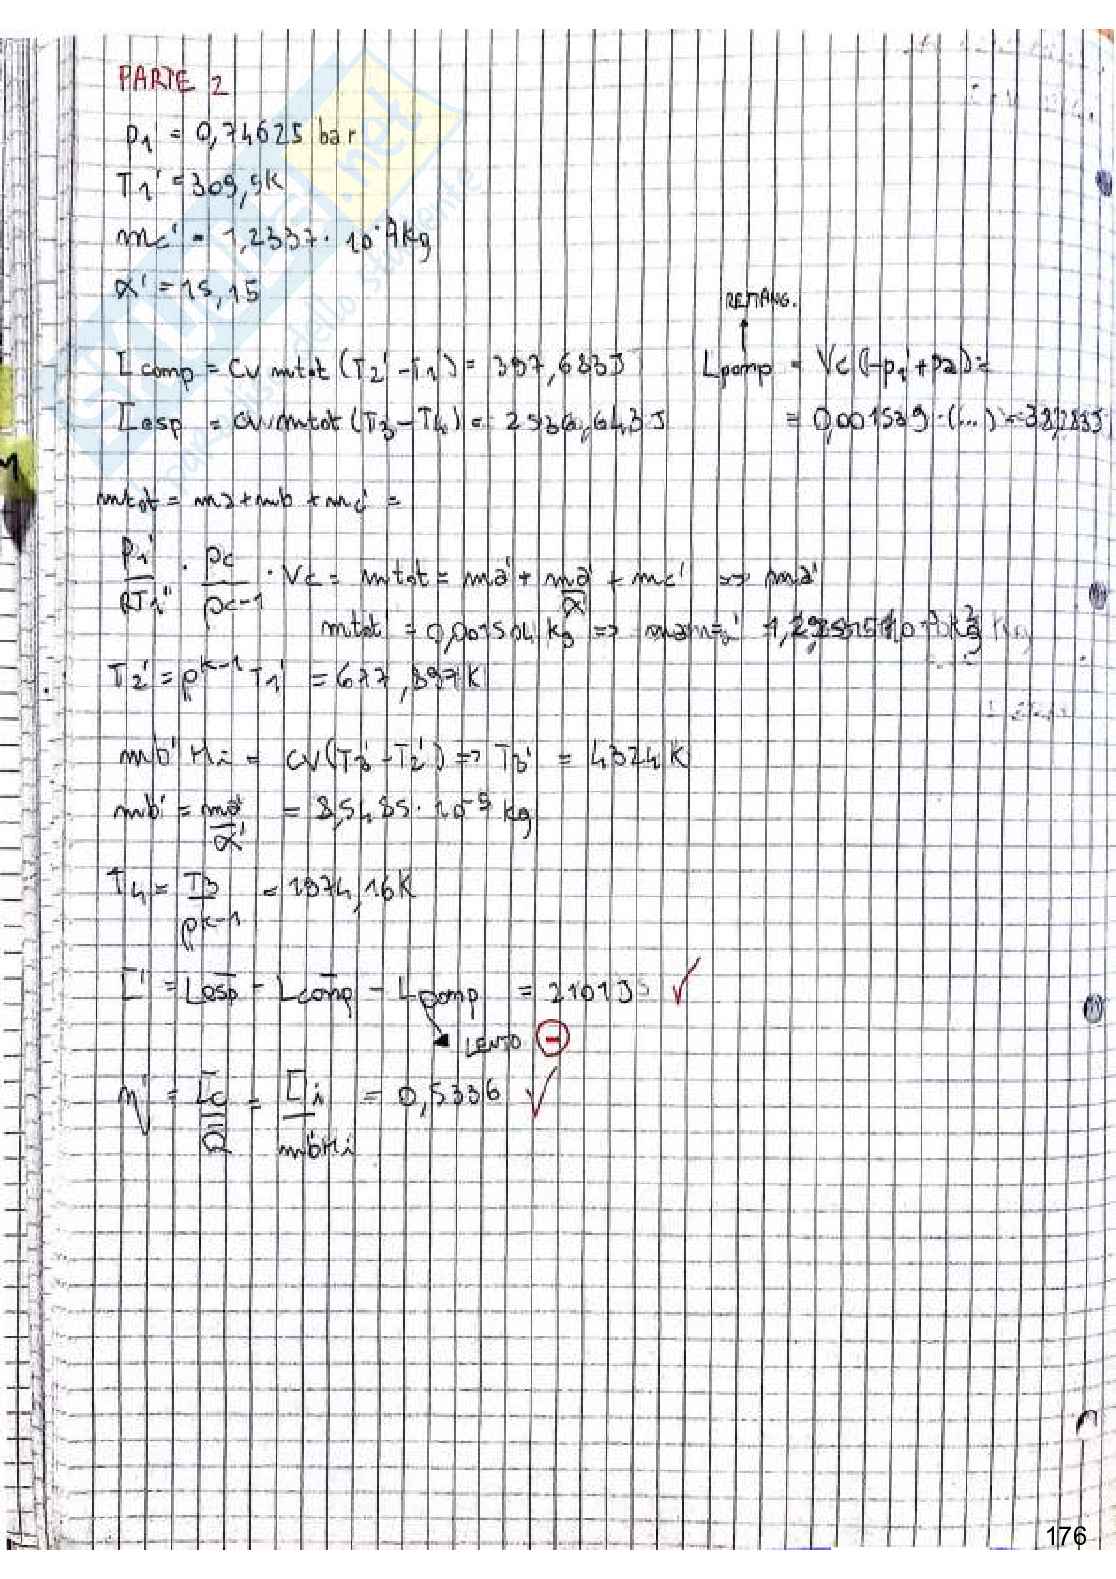 PARTE 2
p1' = 0,74625 bar
T1' = 309,9K
mc' = 1,2337 · 10^-4 kg
α' = 15,15
REMANG.
Lcomp = cv mtot (T2' - T1') = 397,683J
Lpomp = Vc (-p1' + p2) =
Lesp = cv mtot (T3 - T4) = 2536,643J
= 0,001539 · (...) = 38,283J
mtot = ma + mb + mc' =
p1'/RT1'' · ρc/ρc-1 · Vc = mtot = ma' + ma'/α' + mc' => ma'
mtot' = 0,001504 kg =>
T2' = ρ^k-1 T1' = 677,897K
mb' Hi = cv (T3' - T2') => T3' = 4324 K
mb' = ma'/α' = 8,5485 · 10^-5 kg
T4 = T3/ρ^k-1 = 1974,16K
L' = Lesp - Lcomp - Lpomp = 2101J ✓
LENTO -
η' = Lc/Q = Li/mb'Hi = 0,5336 ✓
176